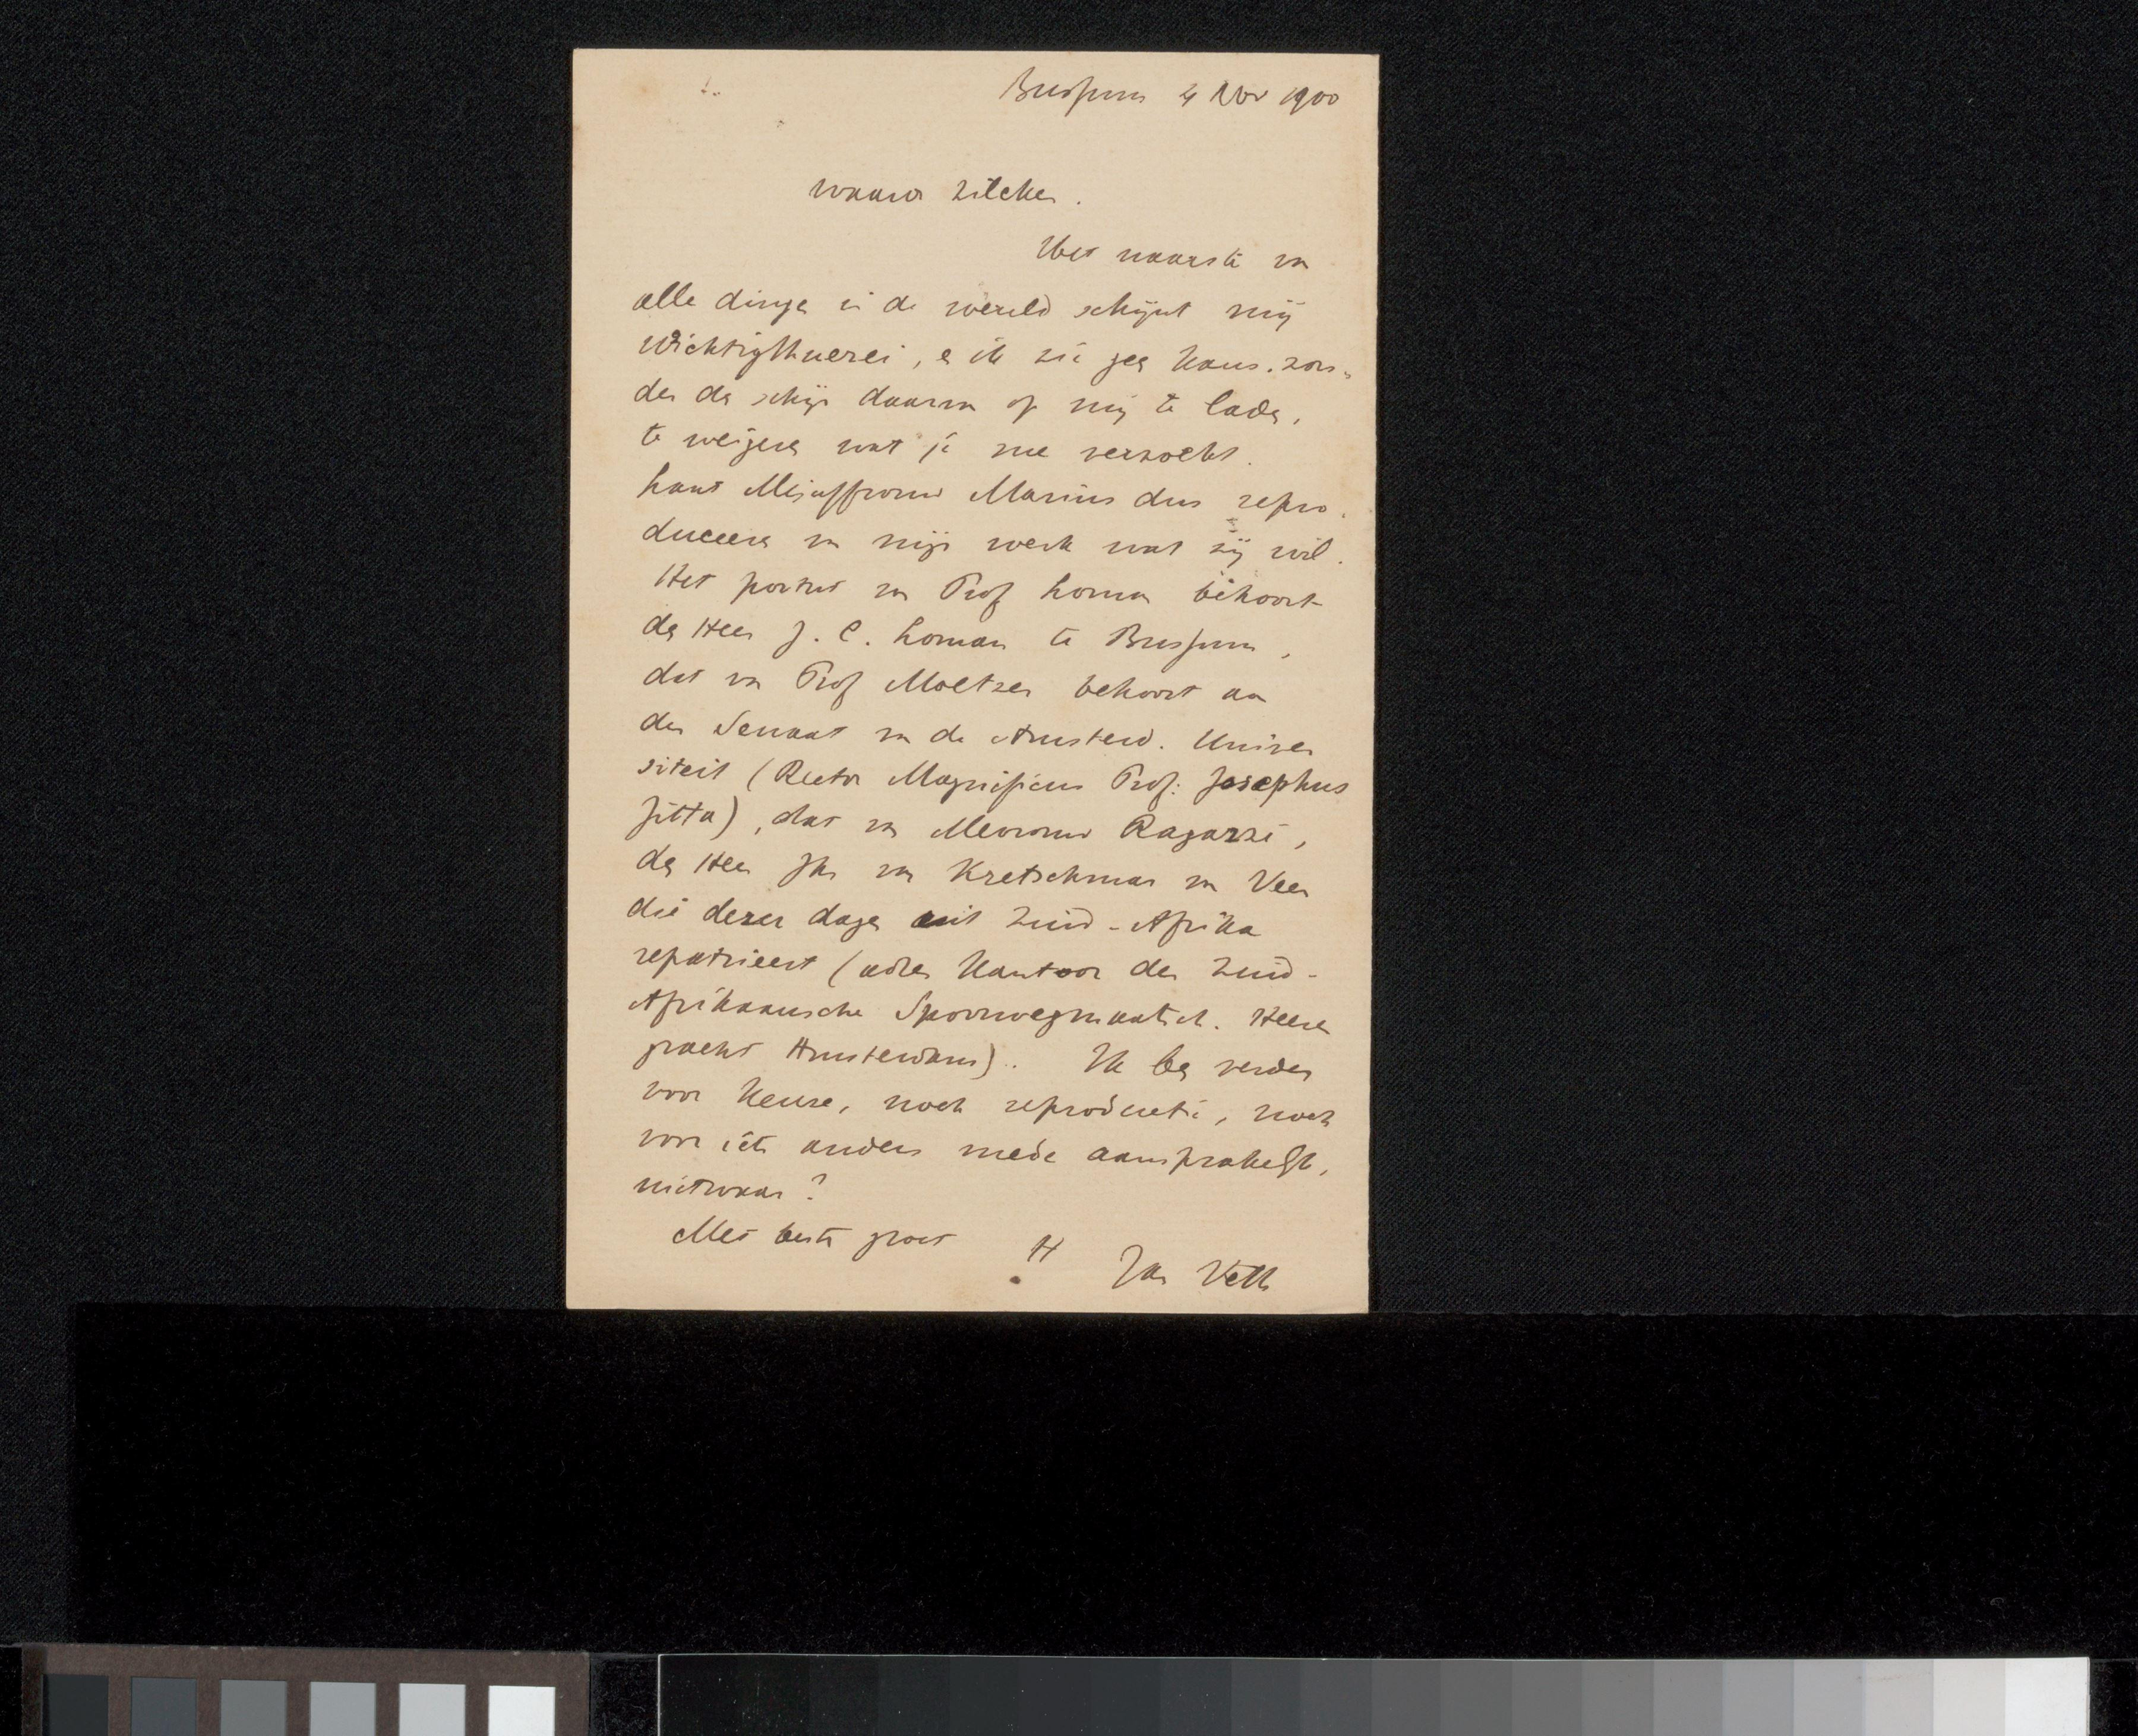 Bussum 4 Nov 1900
Waarde Zilcken.
Het naarste van
alle dingen in de wereld schijnt mij
Wichtigthuerei, en ik zie geen kans, zon-
der den schijn daarvan op mij te laden,
te weigeren wat je me verzoekt.
Laat Mejuffrouw Marius dus repro-
duceeren van mijn werk wat zij wil.
Het portret van Prof Loman behoort
den Heer J. C. Loman te Bussum,
dat van Prof Moltzer behoort aan
den Senaat van de Amsterd. Univer
siteit (Rector Magnificus Prof: Josephus
Jitta), dat van Mevrouw Ragazzi,
den Heer Jhr van Kretschmar van Veen
die dezer dagen uit Zuid-Afrika
repatrieert (adres Kantoor der Zuid-
Afrikaansche Spoorwegmaatsch. Heeren
gracht Amsterdam). Ik ben verder
voor keuze, noch reproductie, noch
voor iets anders mede aansprakelijk,
nietwaar?
Met beste groet
Jan Veth